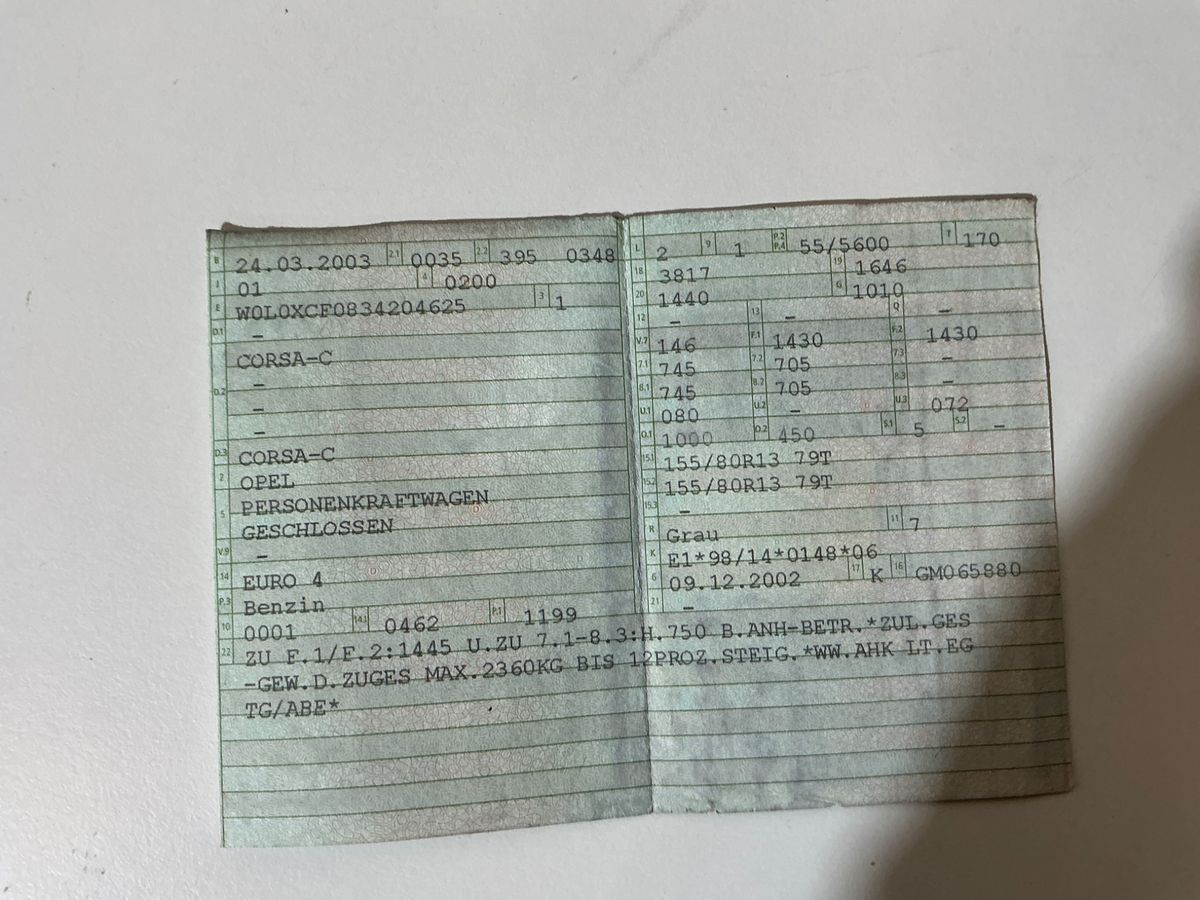 B 24.03.2003 2.1 0035 2.2 395 0348
J 01 4 0200
E W0L0XCF0834204625 3 1
D.1 –
CORSA-C
–
D.2 –
–
D.3 CORSA-C
2 OPEL
5 PERSONENKRAFTWAGEN
GESCHLOSSEN
V.9 –
14 EURO 4
P.3 Benzin
10 0001 14.1 0462 P.1 1199
L 2 9 1 P.2 P.4 55/5600 T 170
18 3817 19 1646
20 1440 G 1010
12 – 13 – Q –
V.7 146 F.1 1430 F.2 1430
7.1 745 7.2 705 7.3 –
8.1 745 8.2 705 8.3 –
U.1 080 U.2 – U.3 072
O.1 1000 O.2 450 S.1 5 S.2 –
15.1 155/80R13 79T
15.2 155/80R13 79T
15.3 –
R Grau 11 7
K E1*98/14*0148*06
6 09.12.2002 17 K 16 GM065880
21 –
22 ZU F.1/F.2:1445 U.ZU 7.1-8.3:H.750 B.ANH-BETR.*ZUL.GES
-GEW.D.ZUGES MAX.2360KG BIS 12PROZ.STEIG.*WW.AHK LT.EG
TG/ABE*